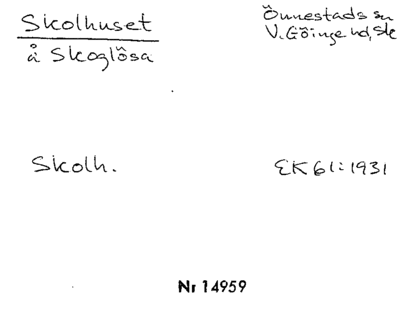 Skolhuset
å Skoglösa
Önnestads sn
V. Göinge hd, Sk
Skolh.
EK 61:1931
Nr 14959